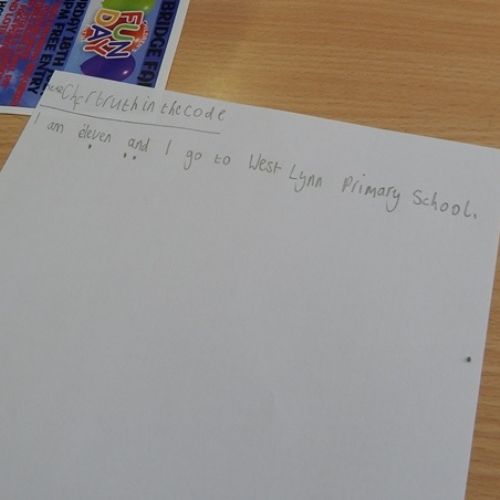 BRIDGE FA
URDAY 18TH
PM FREE ENTRY
FUN
DAY
truth in the code
I am eleven and I go to West Lynn Primary School.